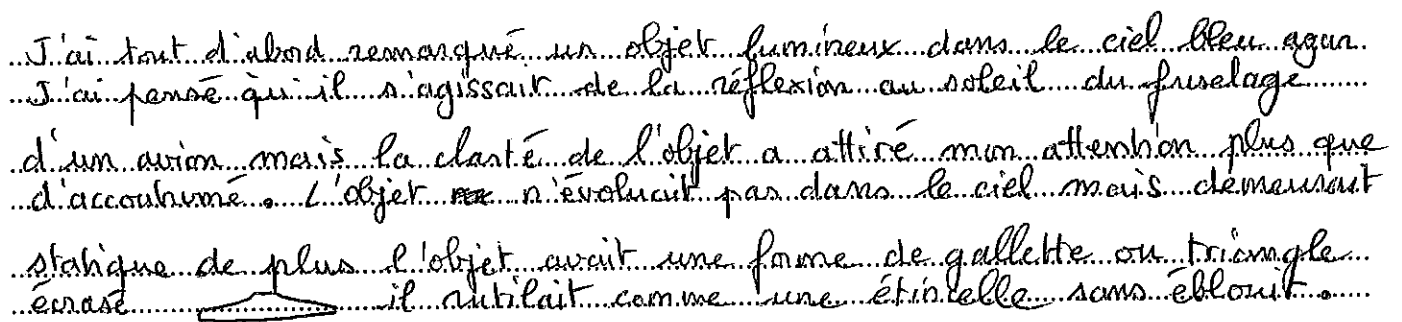 J'ai tout d'abord remarqué un objet lumineux dans le ciel bleu azur
J'ai pensé qu'il s'agissait de la réflexion au soleil du fuselage
d'un avion mais la clarté de l'objet a attiré mon attention plus que
d'accoutumé. L'objet n'évoluait pas dans le ciel mais demeurait
statique de plus l'objet avait une forme de gallette ou triangle
écrasé il rutilait comme une étincelle sans éblouir.